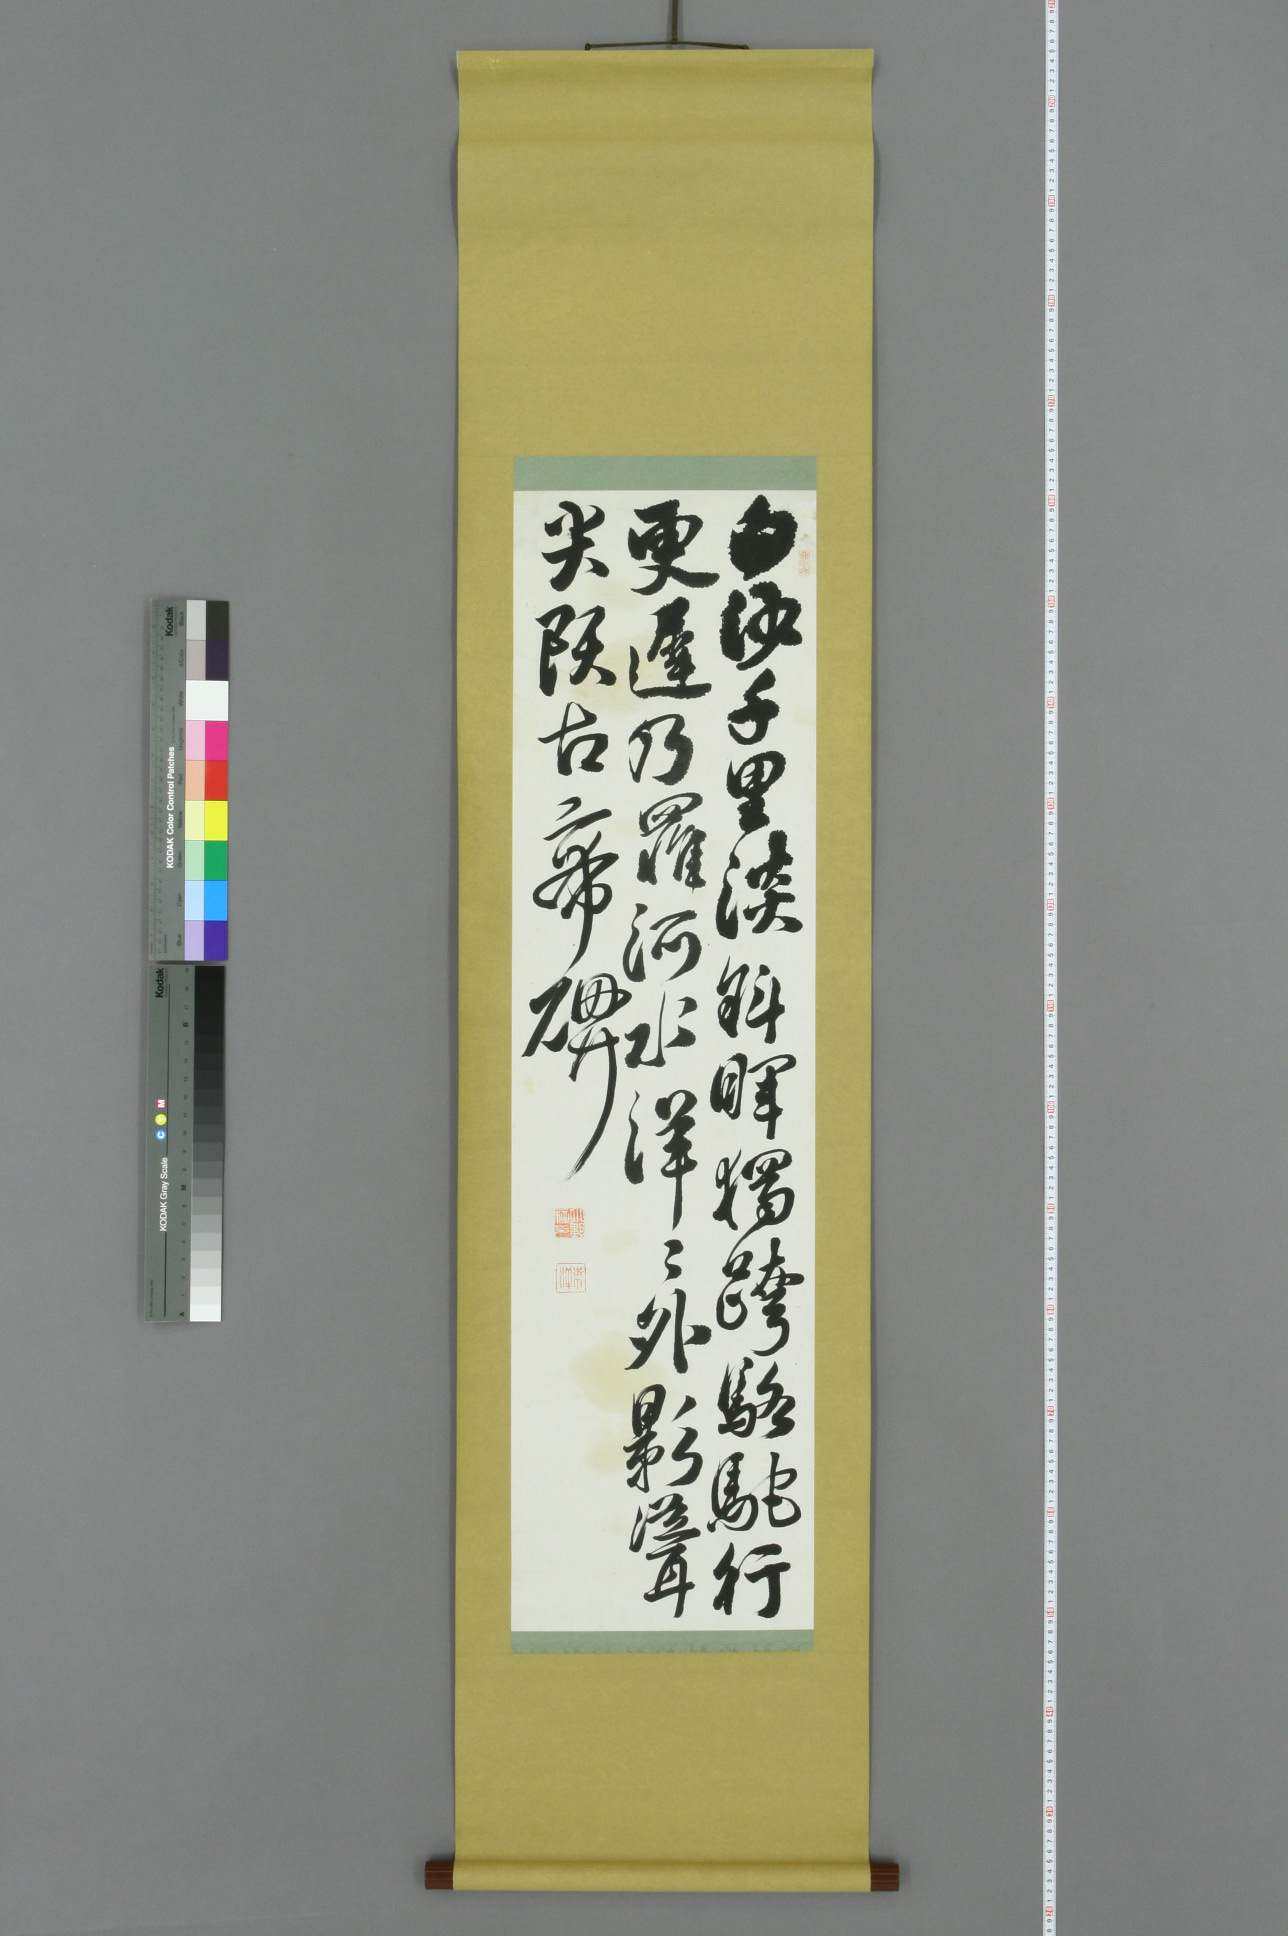 白沙千里淡斜暉獨跨駱駝行
更遲乃羅河水洋々外影聳
尖陵古帝碑
Kodak
KODAK Color Control Patches
Kodak
KODAK Gray Scale
C Y M
A
M
B